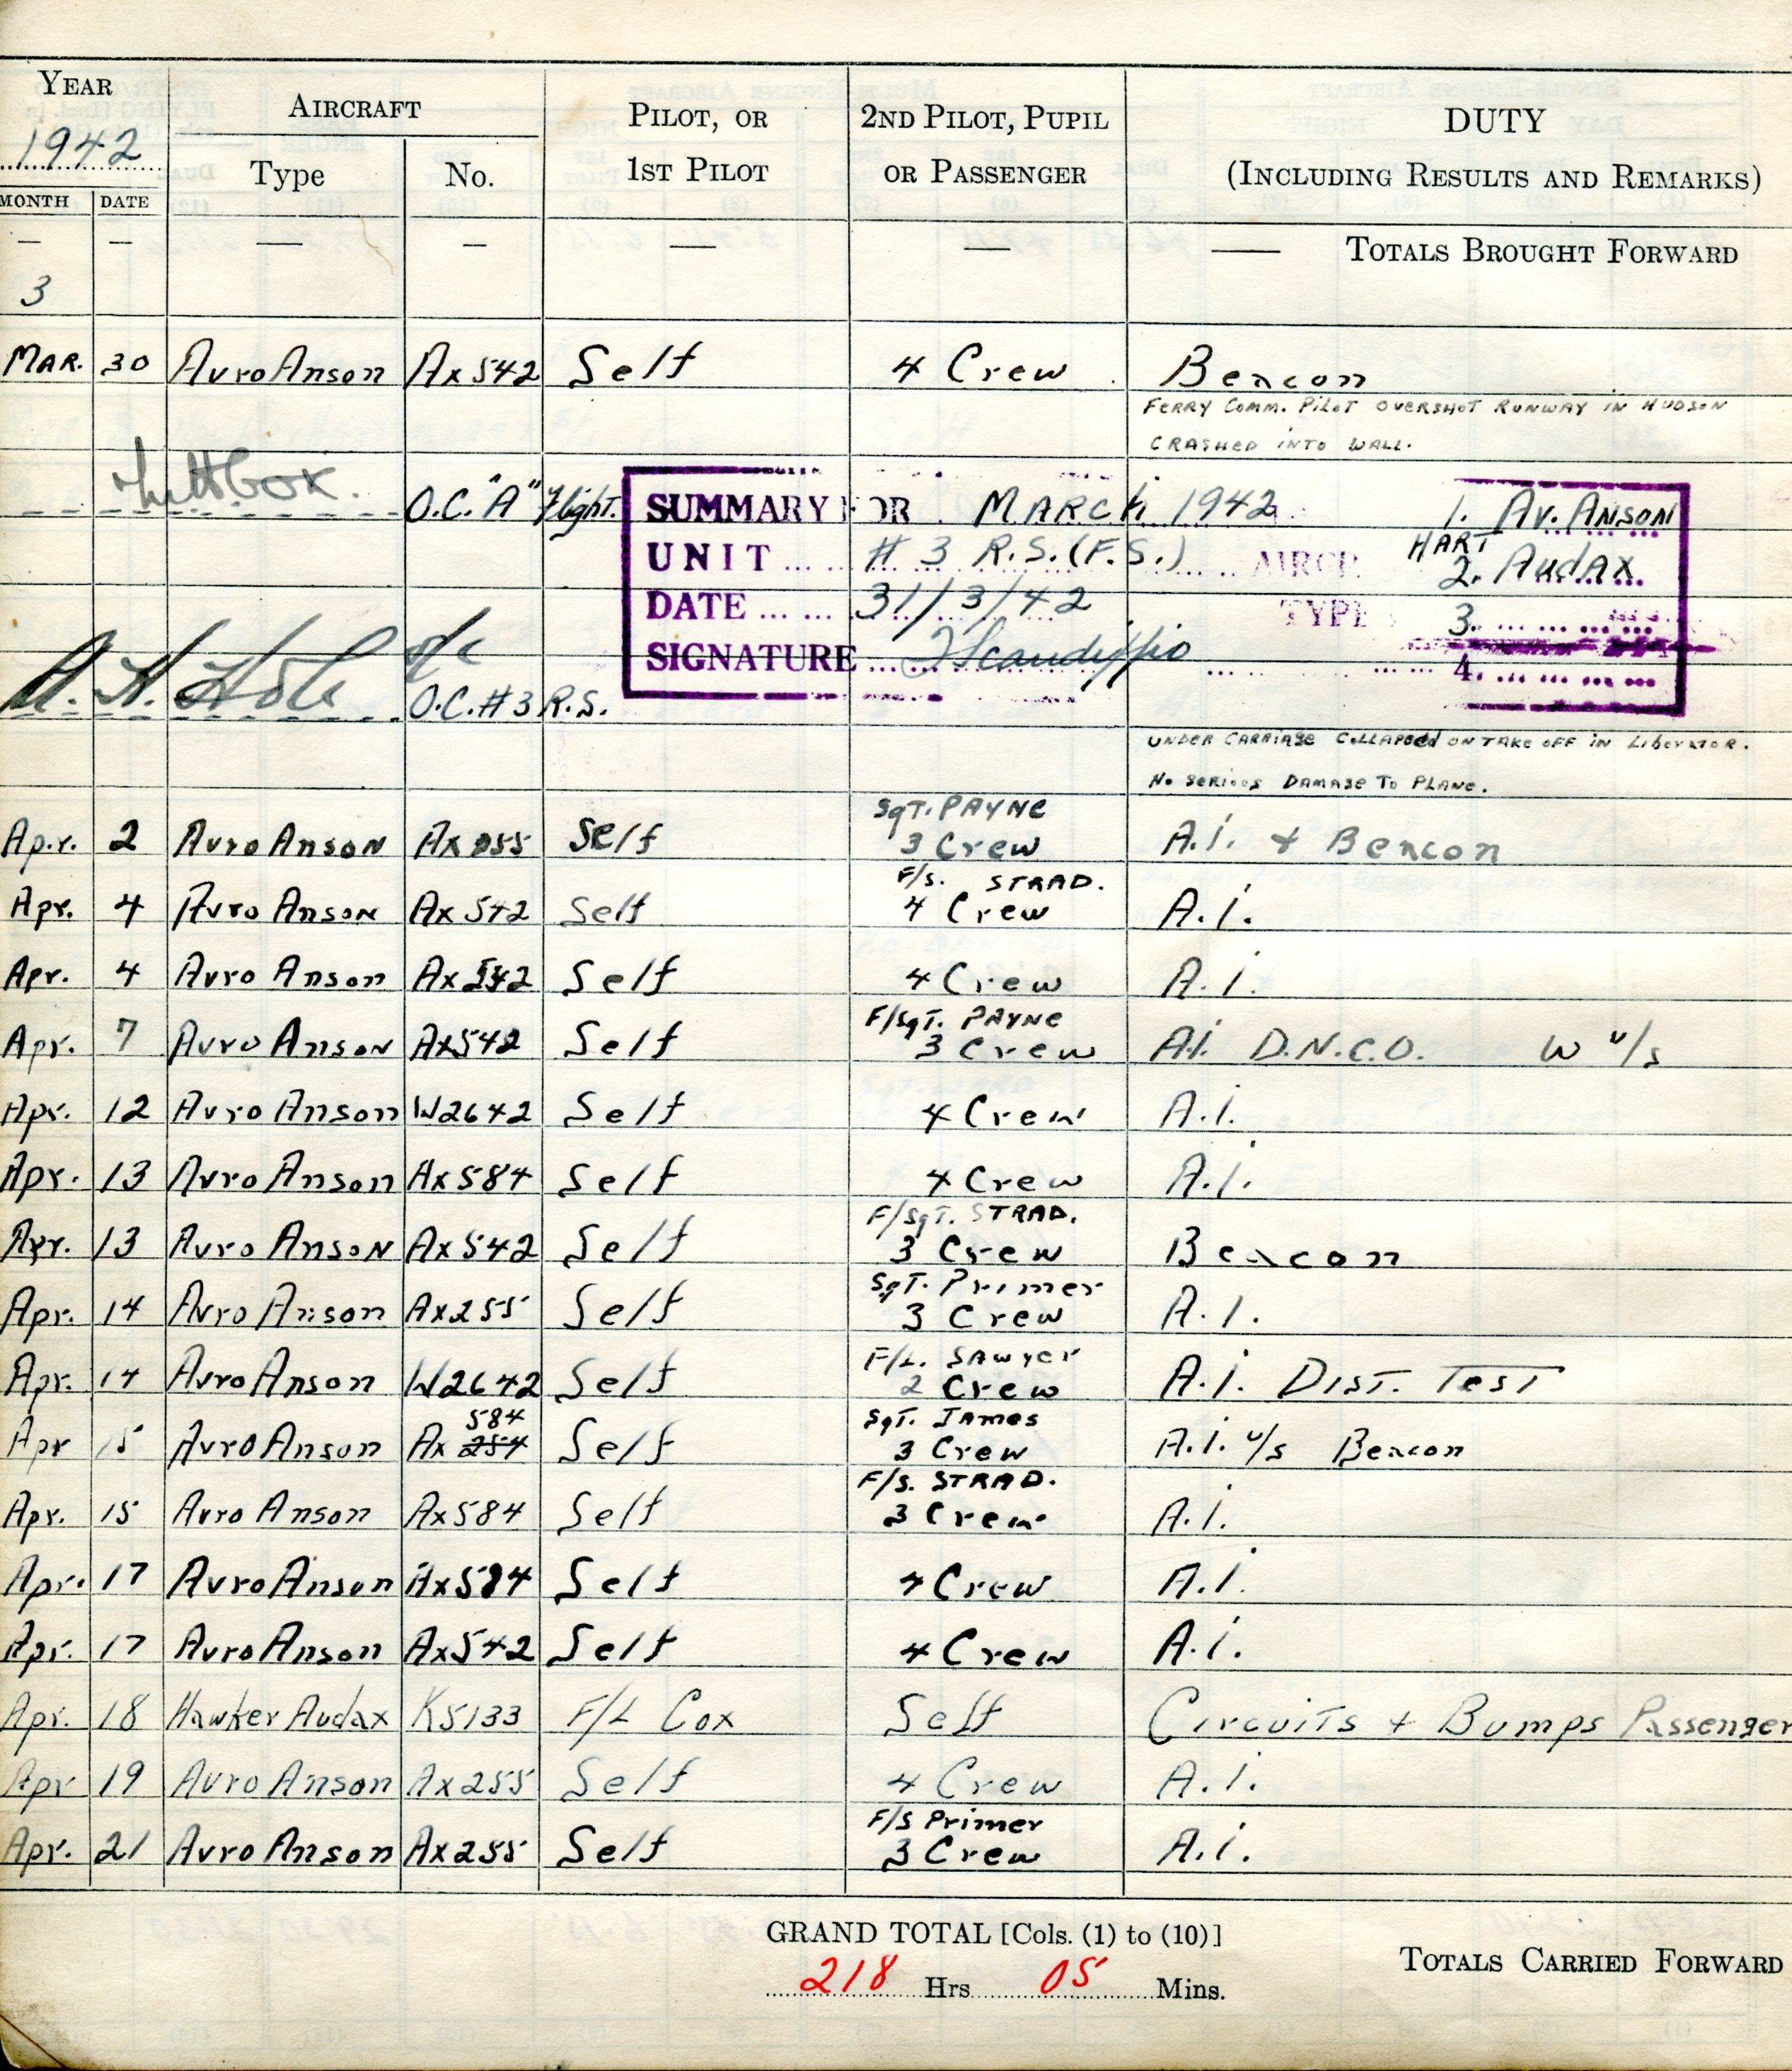 YEAR 1942 AIRCRAFT PILOT, OR 2ND PILOT, PUPIL DUTY
Type No. 1ST PILOT OR PASSENGER (INCLUDING RESULTS AND REMARKS)
MONTH DATE
— — — — — — — TOTALS BROUGHT FORWARD
3
MAR. 30 Avro Anson Ax542 Self 4 Crew Beacon
FERRY COMM. PILOT OVERSHOT RUNWAY IN HUDSON
CRASHED INTO WALL.
O.C. "A" Flight. SUMMARY FOR MARCH 1942 1. AV. ANSON
UNIT # 3 R.S.(F.S.) AIRCR. HART 2. Audax
DATE 31/3/42 TYPE 3.
SIGNATURE 4.
O.C. #3 R.S.
UNDER CARRIAGE COLLAPSED ON TAKE OFF IN LIBERATOR.
No SERIOUS DAMAGE TO PLANE.
Sgt. PAYNE
Apr. 2 Avro Anson Self 3 Crew A.I. + Beacon
F/S. STRAD.
Apr. 4 Avro Anson Ax542 Self 4 Crew A.I.
Apr. 4 Avro Anson Ax542 Self 4 Crew A.I.
F/Sgt. PAYNE
Apr. 7 Avro Anson Ax542 Self 3 Crew A.I. D.N.C.O. W u/s
Apr. 12 Avro Anson W2642 Self 4 Crew A.I.
Apr. 13 Avro Anson Ax584 Self 4 Crew A.I.
F/Sgt. STRAD.
Apr. 13 Avro Anson Ax542 Self 3 Crew Beacon
Sgt. Primer
Apr. 14 Avro Anson Ax255 Self 3 Crew A.I.
F/L. Sawyer
Apr. 14 Avro Anson W2642 Self 2 Crew A.I. Dist. Test
584 Sgt. James
Apr 15 Avro Anson Ax 254 Self 3 Crew A.I. u/s Beacon
F/S. STRAD.
Apr. 15 Avro Anson Ax584 Self 3 Crew A.I.
Apr. 17 Avro Anson Ax584 Self 4 Crew A.I.
Apr. 17 Avro Anson Ax542 Self 4 Crew A.I.
Apr. 18 Hawker Audax K5133 F/L Cox Self Circuits + Bumps Passenger
Apr 19 Avro Anson Ax255 Self 4 Crew A.I.
F/S Primer
Apr. 21 Avro Anson Ax255 Self 3 Crew A.I.
GRAND TOTAL [Cols. (1) to (10)]
218 Hrs 05 Mins.
TOTALS CARRIED FORWARD